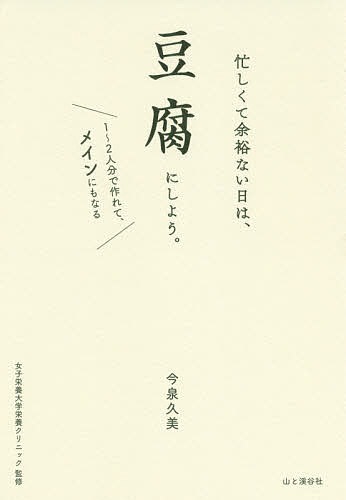 忙しくて余裕ない日は、
豆腐にしよう。
1〜2人分で作れて、
メインにもなる
今泉久美
女子栄養大学栄養クリニック 監修
山と溪谷社